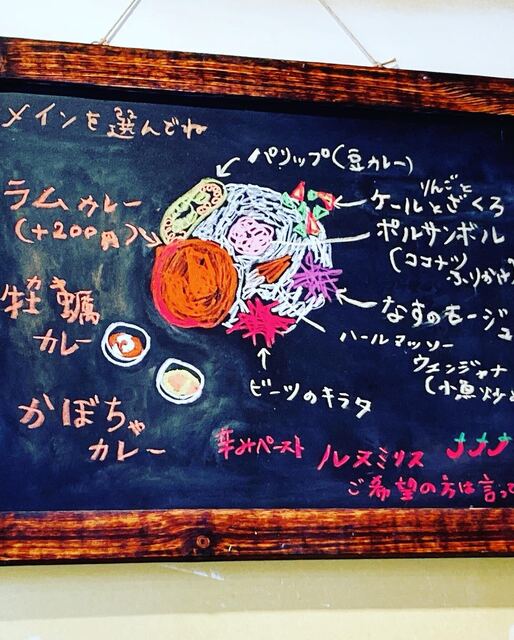 メインを選んでね
パリップ(豆カレー)
ラムカレー
(+200円)
りんごと
ケールとざくろ
ポルサンボル
(ココナツ
ふりかけ)
牡蠣
カレー
なすのモージュ
ハールマッソー
ウェンジャナ
(小魚炒め
ビーツのキラタ
かぼちゃ
カレー
辛みペースト ルヌミリス
ご希望の方は言って